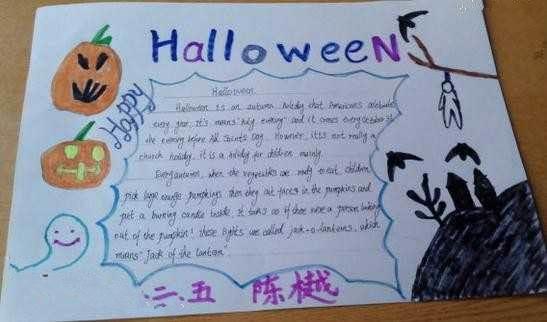 Halloween
Happy
Halloween
Halloween is an autumn holiday that Americans celebrate
every year. It's means "holy evening" and it comes every october 31
the evening before All Saints Day. However, it's not really a
church holiday, it is a holiday for children mainly.
Every autumn, when the vegetables are ready to eat, children
pick large orange pumpkings. then they cut faces in the pumpkins and
put a burning candle inside. It looks as if there were a person looking
out of the pumpkin! these lights are called jack-o-lanterns, which
means "Jack of the lantern".
二.五 陈樾